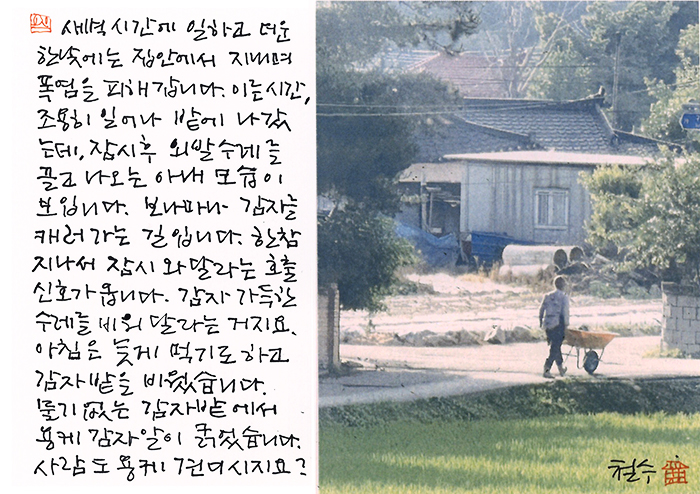 새벽 시간에 일하고 더운
한낮에는 집안에서 지내며
폭염을 피해 갑니다. 이른시간,
조용히 일어나 밭에 나갔
는데, 잠시후 외발 수레를
끌고 나오는 아내 모습이
보입니다. 보나마나 감자를
캐러 가는 길입니다. 한참
지나서 잠시 와 달라는 호출
신호가 옵니다. 감자 가득한
수레를 비워 달라는 거지요.
아침은 늦게 먹기로 하고
감자밭을 비웠습니다.
물기 없는 감자밭에서
용케 감자알이 굵었습니다.
사람도 용케 견디시지요?
철수